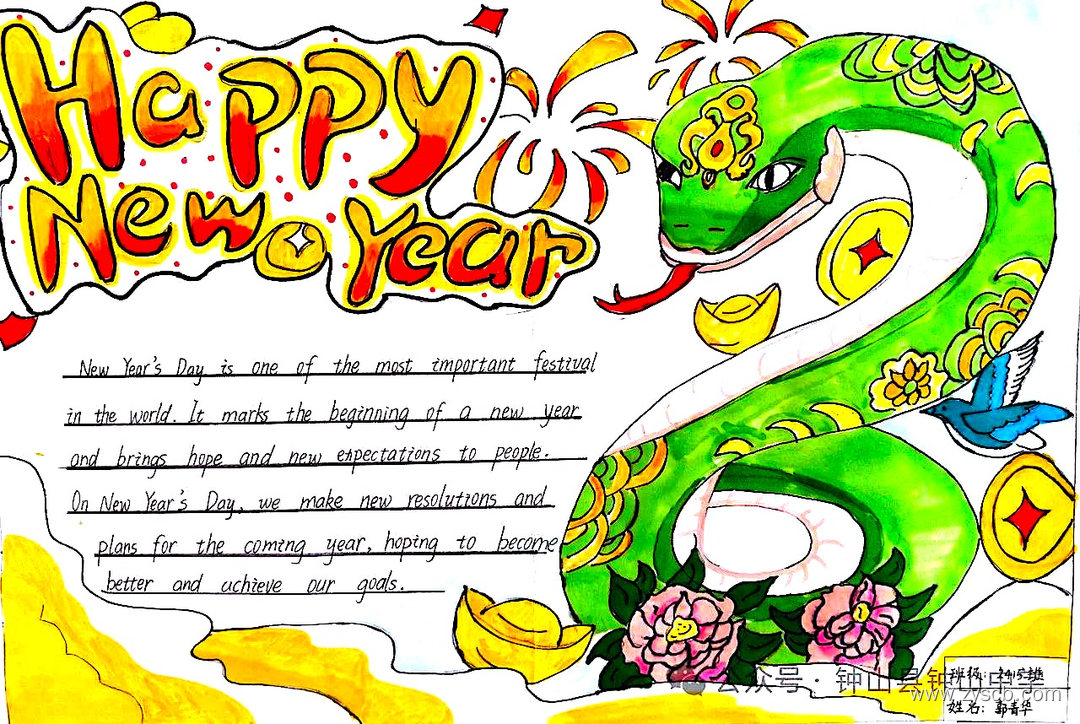 Happy
New Year
New Year's Day is one of the most important festival
in the world. It marks the beginning of a new year
and brings hope and new expectations to people.
On New Year's Day, we make new resolutions and
plans for the coming year, hoping to become
better and achieve our goals.
班级:
公众号·钟山县钟山中学
www.zyscb.com
姓名: 郭青华